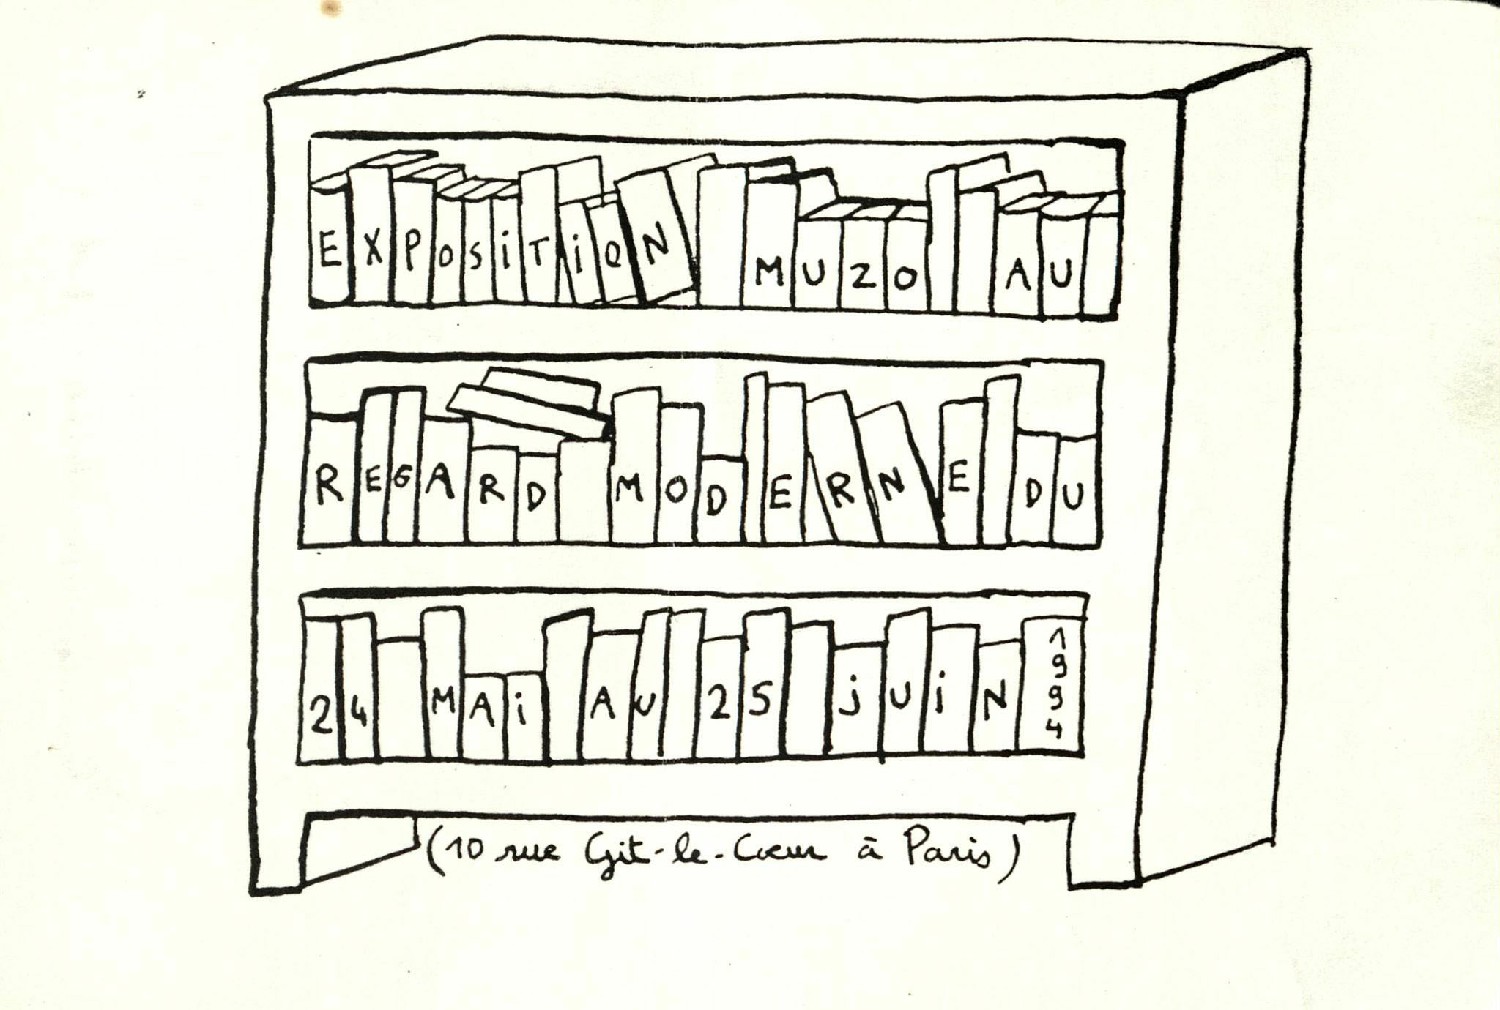 EXPOSiTiON MUZO AU
REGARD MODERNE DU
24 MAi AU 25 jUiN 1994
(10 rue Gît-le-Cœur à Paris)